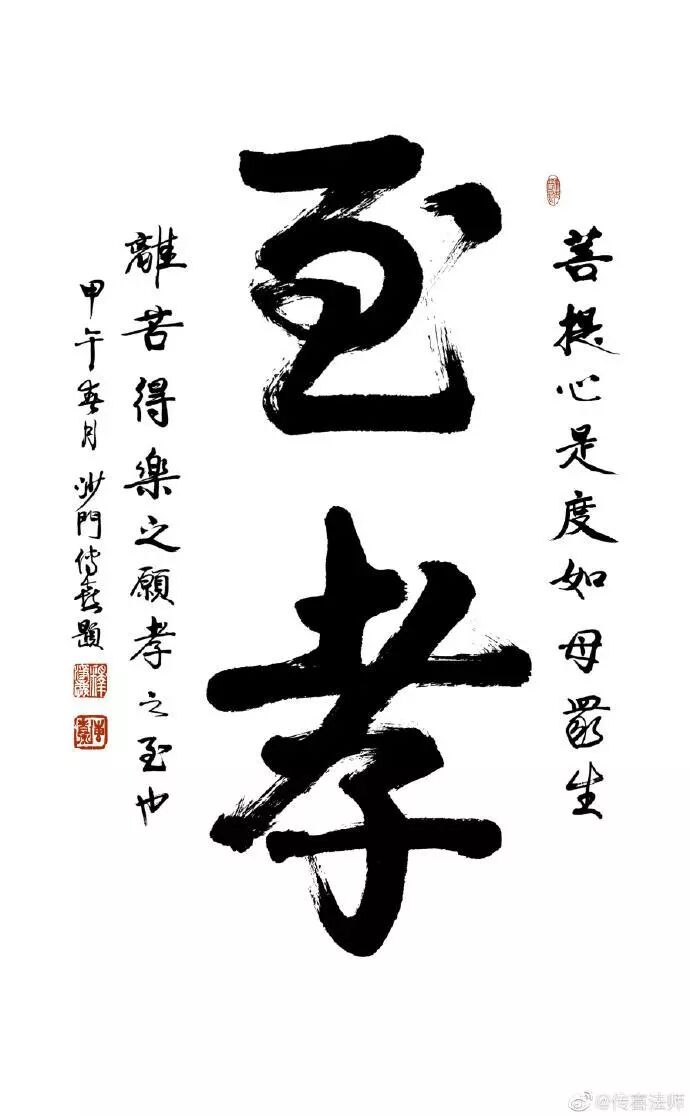 至孝
菩提心是度如母眾生
離苦得樂之願孝之至也
甲午春月沙門傳喜題
@传喜法师